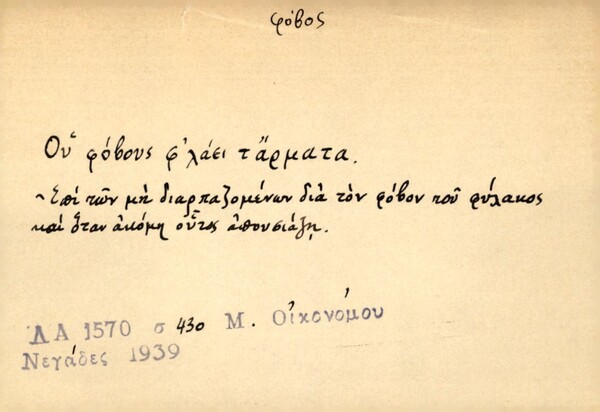 φόβος
Οὑ φόβους φ'λάει τἄρματα.
~ Ἐπί τῶν μή διαρπαζομένων διά τόν φόβον τοῦ φύλακος
καί ὅταν ἀκόμη οὗτος ἀπουσιάζῃ.
ΛΑ 1570 σ 430 Μ. Οἰκονόμου
Νεγάδες 1939